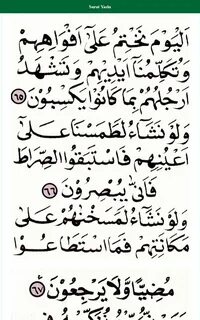 Surat Yasin
اَلْيَوْمَ نَخْتِمُ عَلٰٓى اَفْوَاهِهِمْ
وَتُكَلِّمُنَآ اَيْدِيْهِمْ وَتَشْهَدُ
اَرْجُلُهُمْ بِمَا كَانُوْا يَكْسِبُوْنَ ٦٥
وَلَوْ نَشَآءُ لَطَمَسْنَا عَلٰٓى
اَعْيُنِهِمْ فَاسْتَبَقُوا الصِّرَاطَ
فَاَنّٰى يُبْصِرُوْنَ ٦٦
وَلَوْ نَشَآءُ لَمَسَخْنٰهُمْ عَلٰى
مَكَانَتِهِمْ فَمَا اسْتَطَاعُوْا
مُضِيًّا وَّلَا يَرْجِعُوْنَ ٦٧